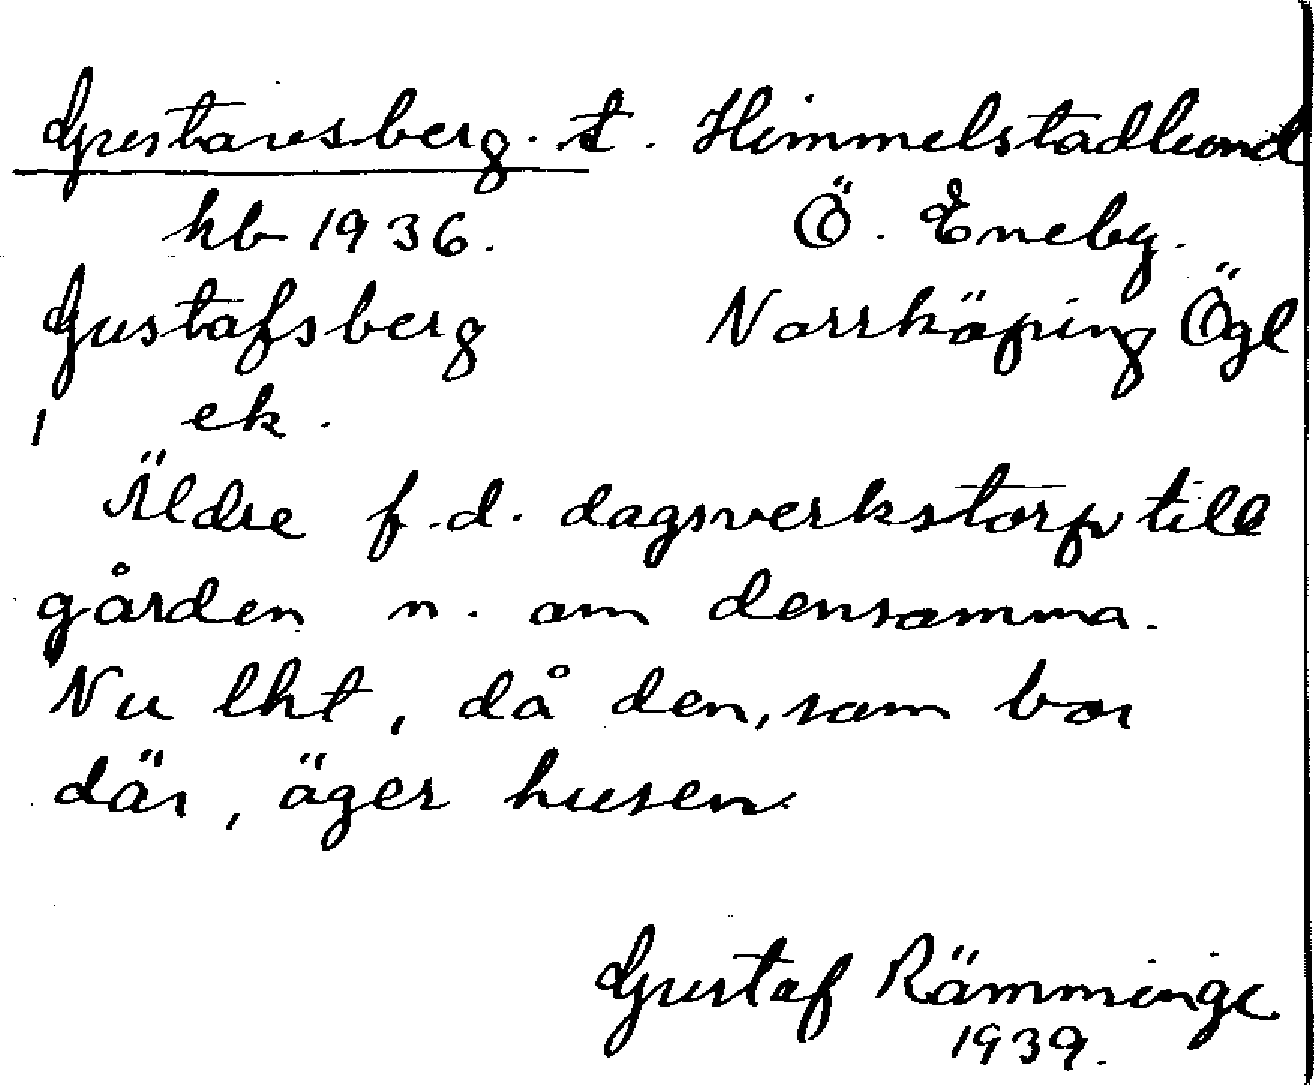 Gustavsberg. t. Himmelstadlund
hb 1936. Ö. Eneby.
Gustafsberg Norrköping Ögl
1 ek.
Äldre f.d. dagsverkstorp till
gården n. om densamma.
Nu lht, då den, som bor
där, äger husen.
Gustaf Rämminge
1939.